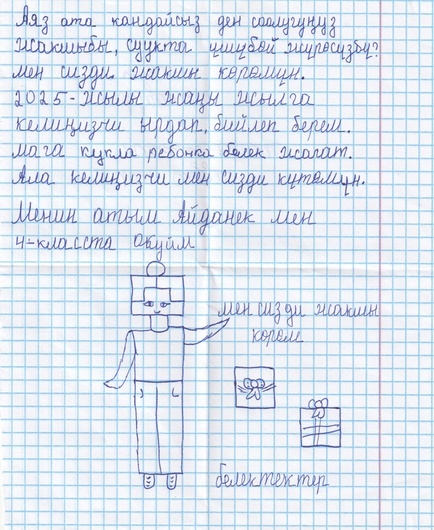 Аяз ата кандайсыз ден соолугуңуз
жакшыбы, суукта үшүбөй жүрөсүзбү?
мен сизди жакшы көрөмүн.
2025-жылы жаңы жылга
келиңизчи ырдап, бийлеп берем.
мага кукла ребонка белек жагат.
Ала келиңизчи мен сизди күтөмүн.
Менин атым Айданек мен
4-класста окуйм
мен сизди жакшы
көрөм
белектектер